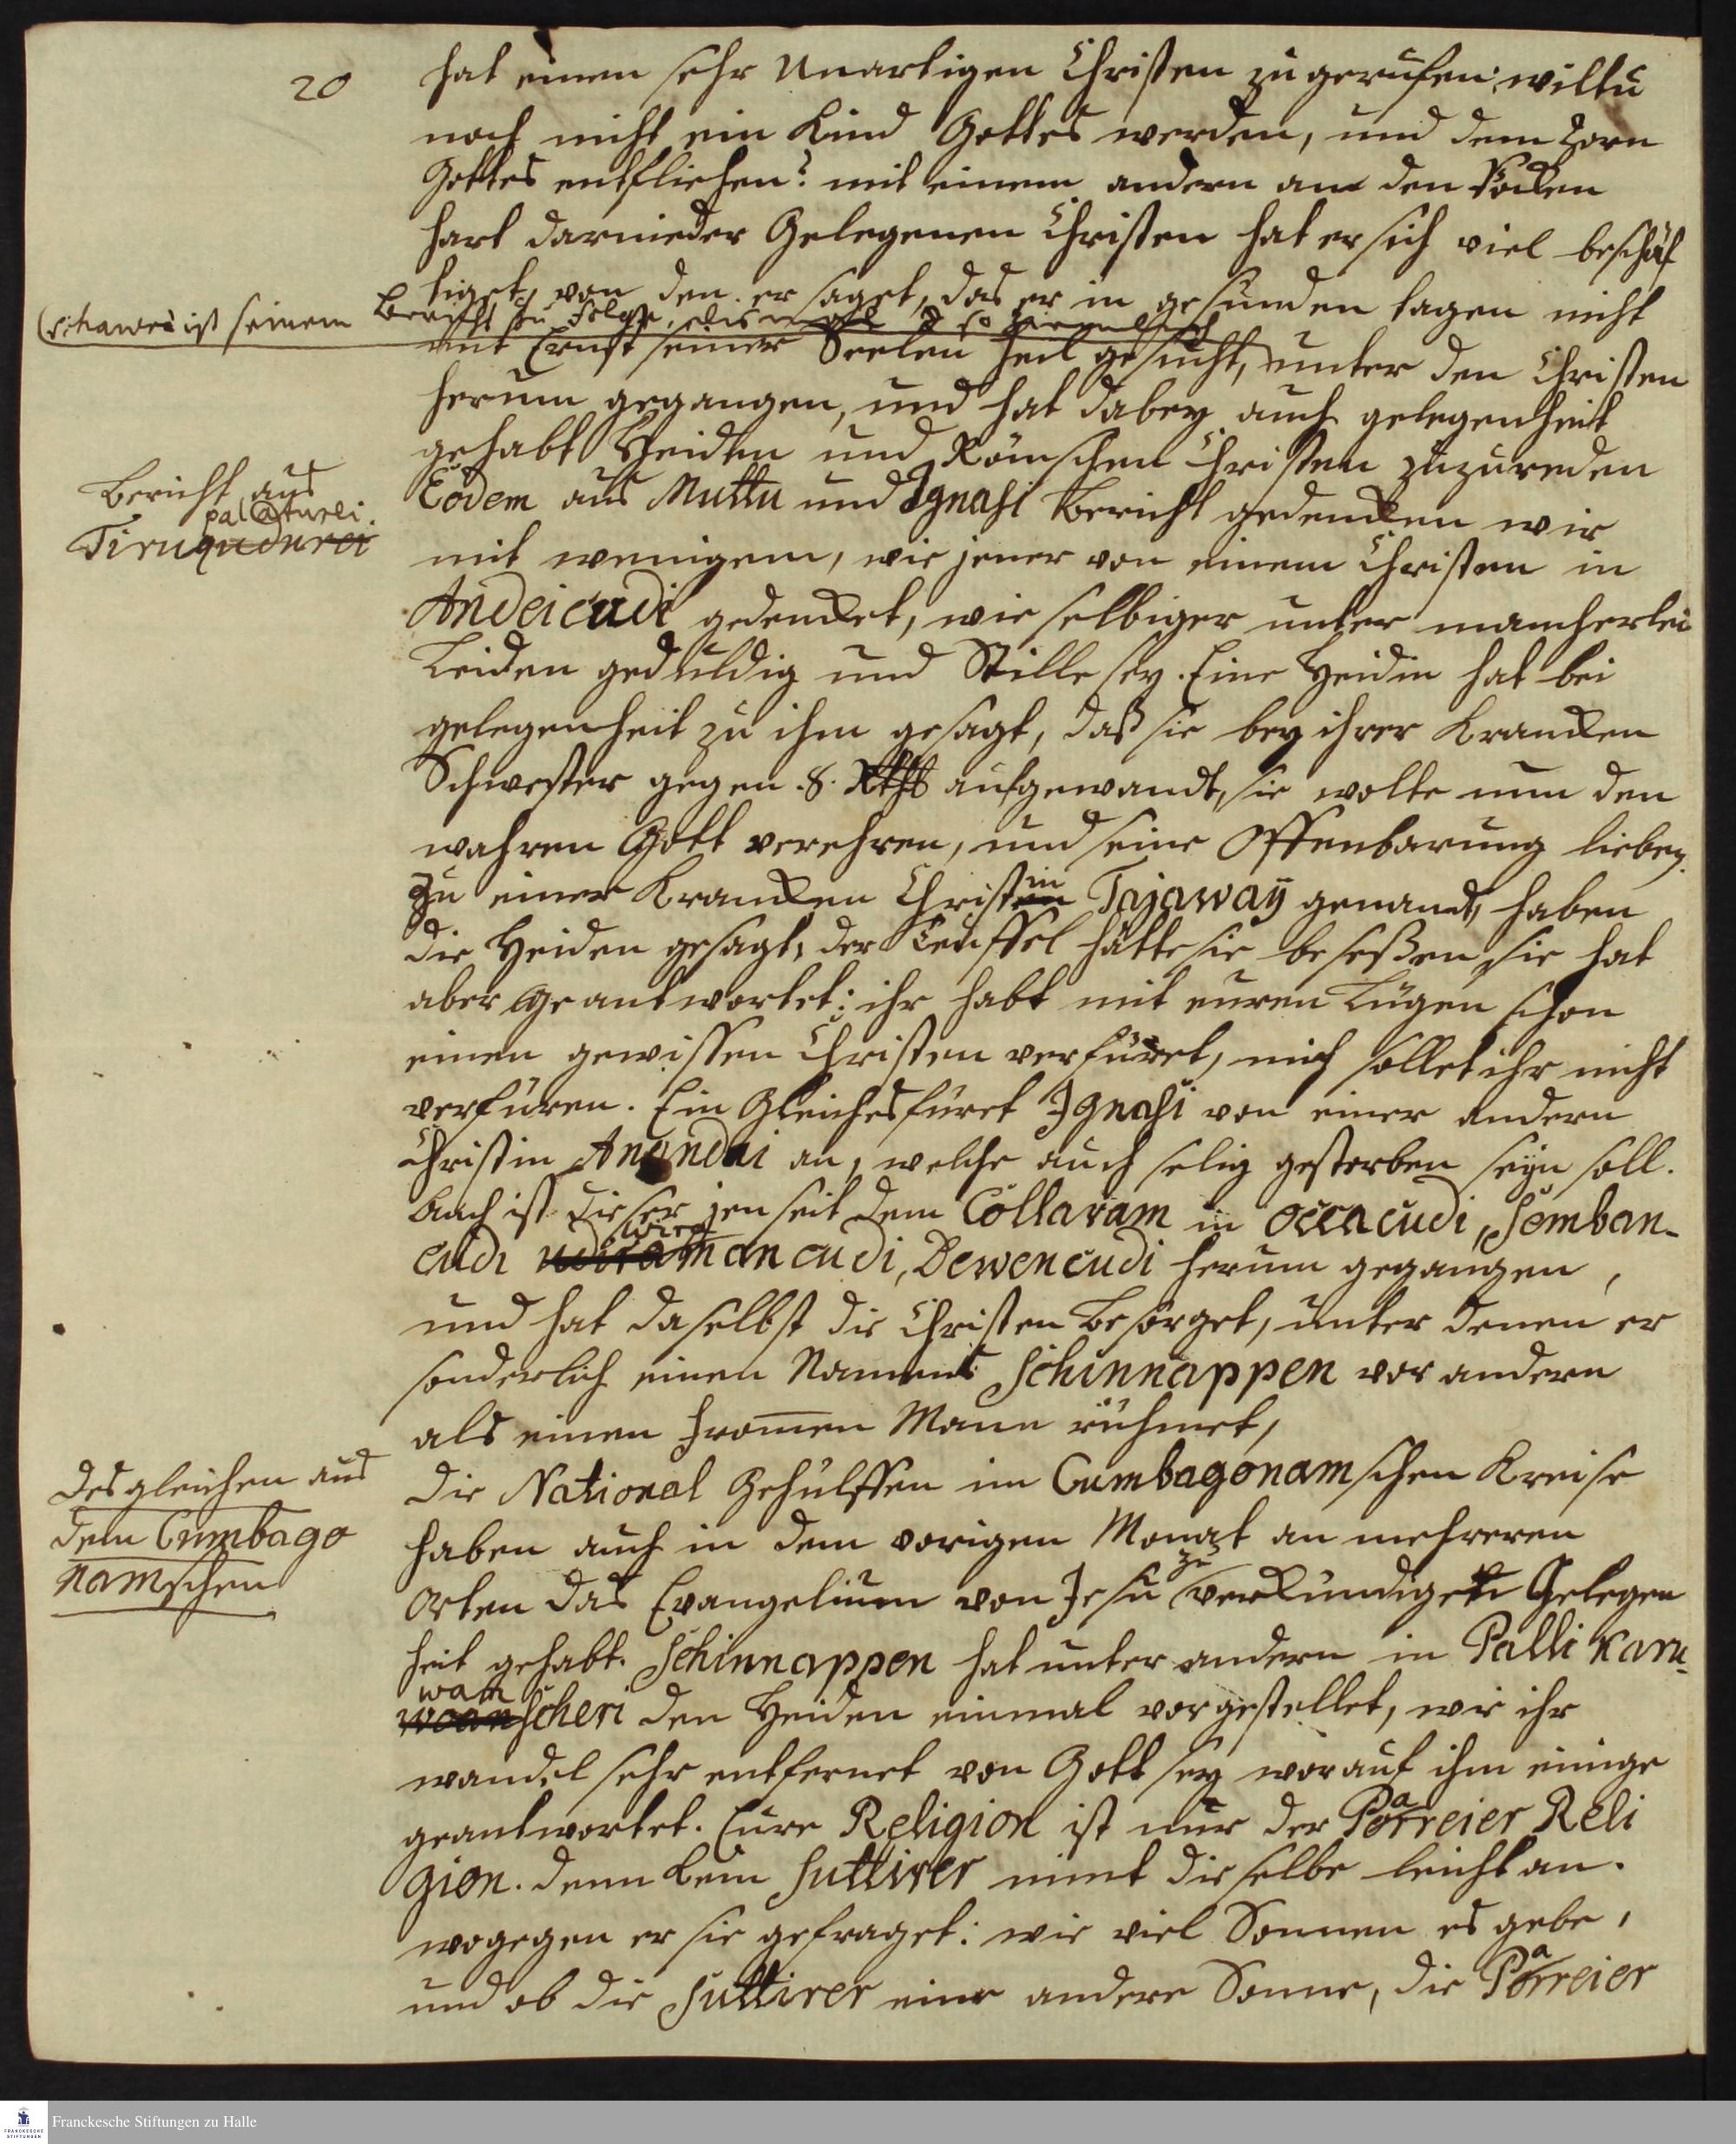 20
hat einen sehr Unartigen Christen zu gerufen: wiltu
noch nicht ein Kind Gottes werden, und dem Zorn
Gottes entfliehen? mit einem andern an den Pocken
hart darnieder Gelegenen Christen hat er sich viel beschäf
tiget, von den er saget, das er in gesunden tagen nicht
mit Ernst seiner Seelen Heil gesucht, unter den Christen
(Schawri ist seinem Bericht zu folge, dismal
herum gegangen, und hat dabey auch gelegenheit
gehabt Heiden und Römschen Christen zuzureden
Bericht aus
palaturei
Tirupudurei
Eodem aus Muttu und Ignasi Bericht gedencken wir
mit wenigem, wie jener von einem Christen in
Andeicudi gedencket, wie selbiger unter mancherlei
Leiden geduldig und Stille sey. Eine Heidin hat bei
gelegenheit zu ihm gesagt, daß sie bey ihrer Krancken
Schwester gegen 8. Rthl aufgewandt, sie wolte nun den
wahren Gott verehren, und seine Offenbarung lieben.
zu einer Krancken Christin Tajaway genandt, haben
die Heiden gesagt, der Teuffel hätte sie beseßen, sie hat
aber geantwortet: ihr habt mit euren Lügen schon
einen gewissen Christen verfüret, mich sollet ihr nicht
verfüren. Ein Gleiches füret Ignasi von einer andern
Christin Anandai an, welche auch selig gestorben seyn soll.
Auch ist dieser jenseit dem Collaram in Occacudi, Somban-
cudi wiramancudi, Dewencudi herum gegangen,
und hat daselbst die Christen Besorget, unter denen er
sonderlich einen Namens Schinnappen vor andern
als einen frommen Mann rühmet,
Desgleichen aus
dem Cumbago
namschen
Die National Gehülffen im Cumbagonamschen Kreise
haben auch in dem vorigen Monat an mehreren
Orten das Evangelium von Jesu zu verkündigen Gelegen
heit gehabt. Schinnappen hat unter andern in Palli Karu-
wamscheri den Heiden einmal vorgestellet, wie ihr
wandel sehr entfernet von Gott sey worauf ihm einige
geantwortet. Eure Religion ist nur der Parreier Reli
gion. denn kein Suttirer nimt dieselbe leicht an.
wogegen er sie gefraget: wie viel Sonnen es gebe,
und ob die Suttirer eine andere Sonne, die Parreier
Franckesche Stiftungen zu Halle
FRANCKESCHE
STIFTUNGEN